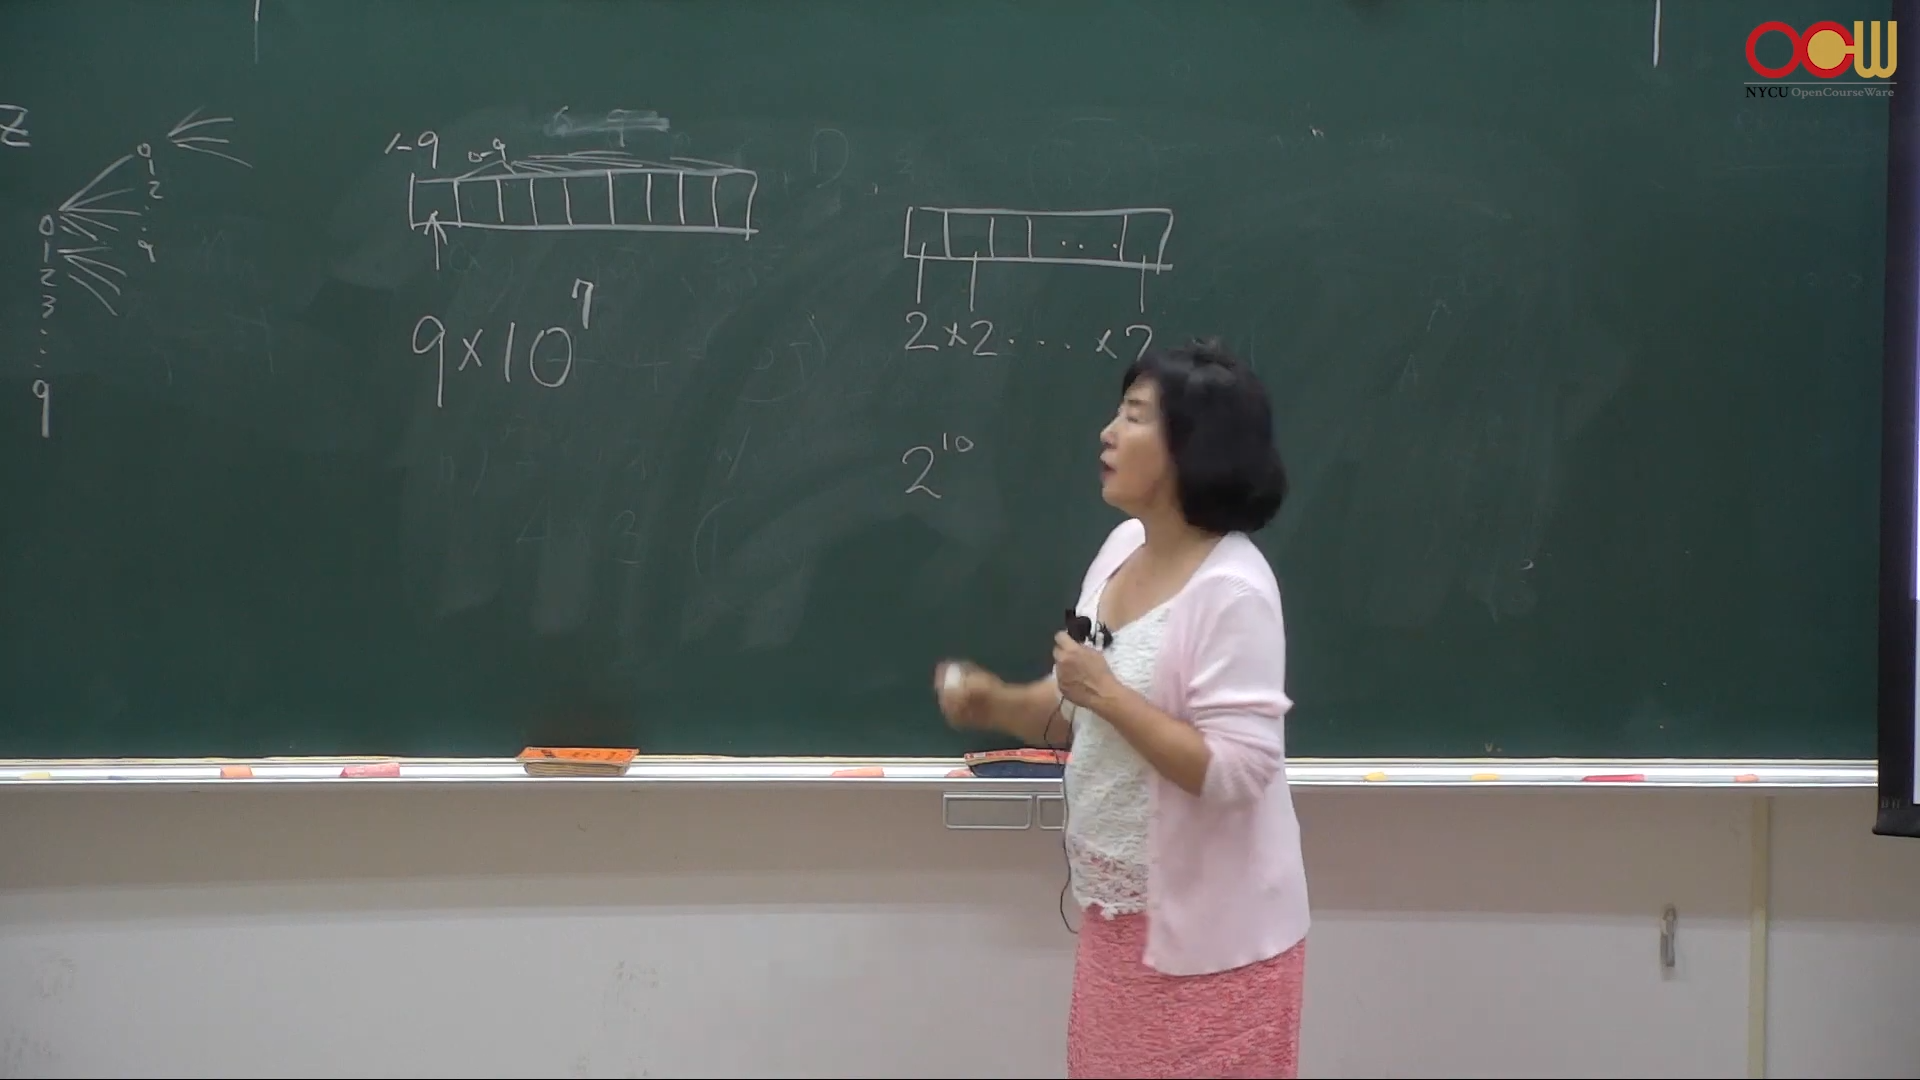 OCW
NYCU OpenCourseWare
Z
0
1
2
:
9
0
1
2
3
:
:
9
1-9 0-9
9×10^7
...
2×2....×2
2^10